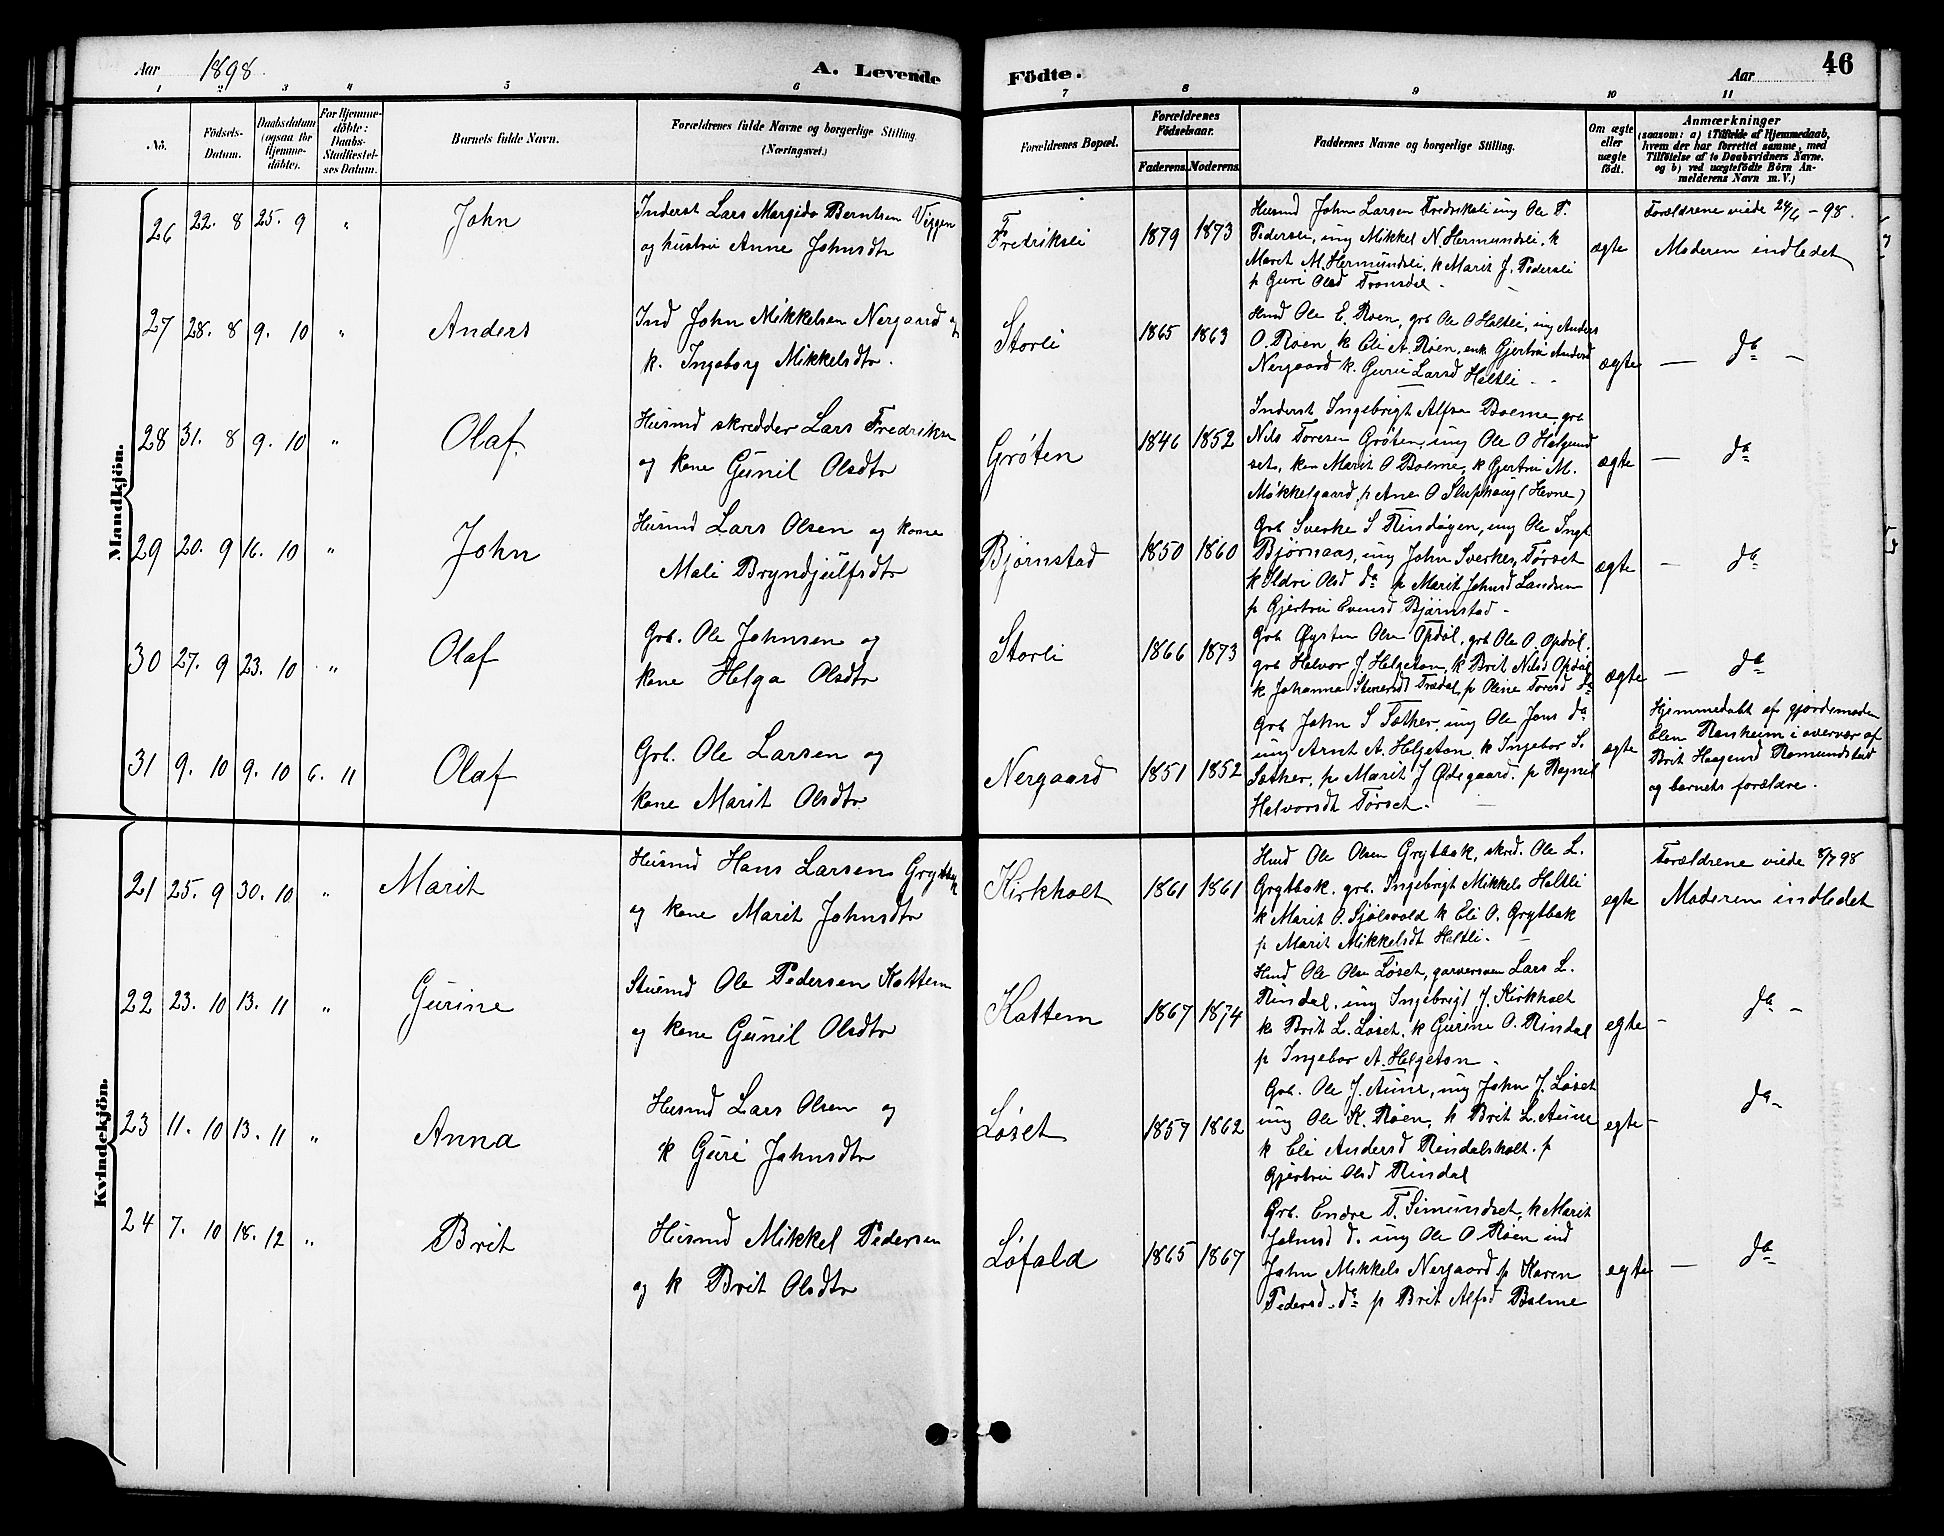 Aar 1898. A. Levende Födte. Aar 46
1 2 3 4 5 6 7 8 9 10 11
No.
Födsels-
Datum.
Daabsdatum
(ogsaa for
Hjemme-
döbte).
For Hjemme-
döbte:
Daabs-
Stadfæstel-
ses Datum.
Barnets fulde Navn.
Forældrenes fulde Navne og borgerlige Stilling.
(Næringsvei.)
Forældrenes Bopæl.
Forældrenes
Födselsaar.
Faderens. Moderens.
Faddernes Navne og borgerlige Stilling.
Om ægte
eller
uægte
födt.
Anmærkninger
(saasom: a) i Tilfælde af Hjemmedaab,
hvem der har forrettet samme, med
Tilföielse af to Daabsvidners Navne,
og b) ved uægtefödte Börn An-
melderens Navn m. V.)
Mandkjön.
26 22. 8 25. 9 " John
Inderst Lars Margido Berntsen Viggen
og hustru Anne Johnsdtr
Fredriksli 1879 1873
Husmd John Larsen Fredriksli ung Ole P.
Pedersli, ung Mikkel N. Hermundsli, k
Maret M. Hermundsli, k Marit J. Pedersli
p Guri Olsd Tronsdal
ægte
Forældrene viede 24/6 - 98.
Moderen indledet
27 28. 8 9. 10 " Anders
Ind John Mikkelsen Nergaard og
k. Ingeborg Mikkelsdtr.
Storli 1865 1863
Hmd Ole E. Røen, grb Ole O Haltli, ung Anders
O. Røen, k Eli A. Røen, enk Gjertru Andersd
Nergaard k. Guri Larsd Haltli -
ægte — da —
28 31. 8 9. 10 " Olaf.
Husmd skredder Lars Fredriksn
og kone Gunil Olsdtr
Grøten 1846 1852
Inderst Ingebrigt Alfsn Bolme grb
Nils Toresen Grøten, ung Ole O Halgund
set, kon Marit O Bolme, k Gjertru M.
Mikkelgaard, p Ane O Sluphaug (Hevne)
ægte — da
29 20. 9 16. 10 " John
Husmd Lars Olsen og kone
Mali Bryndjulfsdtr
Bjørnstad 1850 1860
Grb Sverke S Rindøyen, ung Ole Ingb
Bjørnaas, ung John Sverkes, Tørset
k Ildri Olsd da p Marit Johnsd Landsem
p Gjertru Evensd Bjørnstad -
ægte — da
30 27. 9 23. 10 " Olaf
Grb. Ole Johnsen og
kone Helga Olsdtr
Storli 1866 1873
Grb Øysten Olsn Opdøl, grb Ole O. Opdøl,
grb Halvor J. Helgeton, k Brit Nilsd Opdøl
k Johanna Stenersdt Trædal, p Oline Toresd da
ægte — da
31 9. 10 9. 10 6. 11 Olaf
Grb. Ole Larsen og
kone Marit Olsdtr
Nergaard 1851 1852
Grb John S Sæther, ung Ole Jons da
ung Arnt A. Helgeton, k Ingebor S.
Sæther, p Marit J Ødegaard. p Ragnil
Halvorsdt Tørset.
ægte
Hjemmedøbt af gjordemoder
Elen Ranheim i overvær af
Brit Haagensd Romundstad
og barnets forældre.
Kvindekjön.
21 25. 9 30. 10 " Marit
Husmd Hans Larsen Grytbak
og kone Marit Johnsdtr
Kirkholt 1861 1861
Hmd Ole Olsen Grytbak, skred. Ole L.
Grytbak. grb. Ingebrigt Mikkels Haltli
k Marit O. Sjølsvold k Eli O. Grytbak
p Marit Mikkelsdt Haltli. -
egte
Forældrene viede 8/7 98
Moderen indledet
22 23. 10 13. 11 " Gurine
Stuemd Ole Pedersen Kattem
og kone Gunil Olsdtr
Kattem 1867 1874
Hmd Ole Olsn Løset, garversven Lars L.
Rindal, ung Ingebrigt J. Kirkholt
k Brit L. Løset. k Gurine O. Rindal
p Ingebor A. Helgeton -
egte — da —
23 11. 10 13. 11 " Anna
Husmd Lars Olsen og
k Guri Johnsdtr
Løset 1857 1862
Grb. Ole J. Aune, ung John J. Løset
ung Ole K. Røen, k Brit L. Aune
k Eli Andersd Rindalsholt. p
Gjertru Olsd Rindal
egte — da
24 7. 10 18. 12 " Brit
Husmd Mikkel Pedersen
og k Brit Olsdtr
Løfald 1865 1867
Grb. Endre T. Simundset, k Marit
Johnsd d. ung Ole O. Røen ind
John Mikkels Nergaard p Karen
Pedersd. da p Brit Alfsd Bolme
egte — da